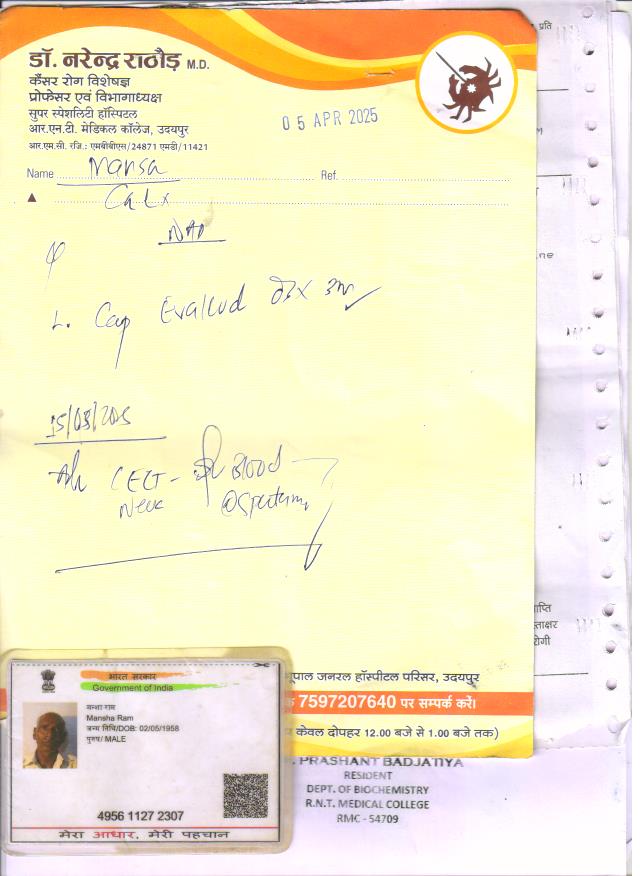 डॉ. नरेन्द्र राठौड़ M.D.
कैंसर रोग विशेषज्ञ
प्रोफेसर एवं विभागाध्यक्ष
सुपर स्पेशलिटी हॉस्पिटल
आर.एन.टी. मेडिकल कॉलेज, उदयपुर
आर.एम.सी. रजि.: एमबीबीएस/24871 एमडी/11421
05 APR 2025
Name Mansa Ref.
Ca Lx
NAD
Cap
CECT - Blood
Neck @Sputum
पाल जनरल हॉस्पीटल परिसर, उदयपुर
7597207640 पर सम्पर्क करें।
केवल दोपहर 12.00 बजे से 1.00 बजे तक)
भारत सरकार
Government of India
मन्शा राम
Mansha Ram
जन्म तिथि/DOB: 02/05/1958
पुरुष/ MALE
4956 1127 2307
मेरा आधार, मेरी पहचान
PRASHANT BADJATIYA
RESIDENT
DEPT. OF BIOCHEMISTRY
R.N.T. MEDICAL COLLEGE
RMC - 54709
प्रति
प्ति
रोगी